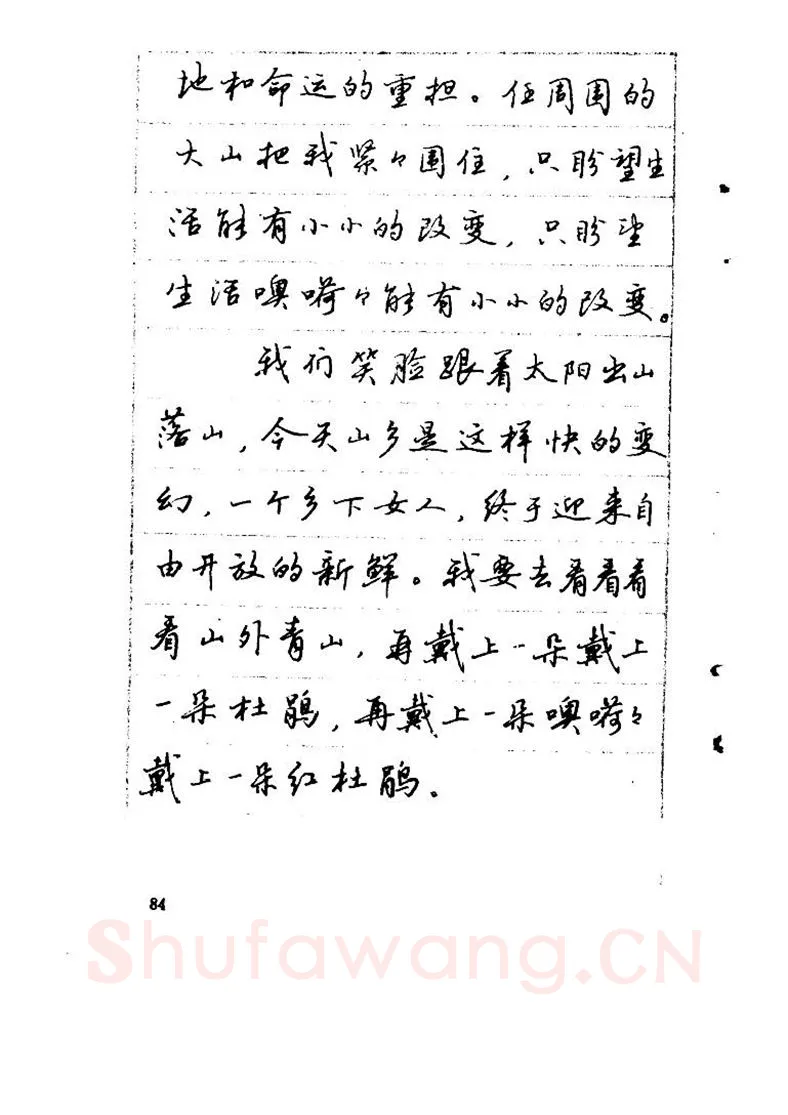 地和命运的重担。任周围的
大山把我紧々围住，只盼望生
活能有小小的改变，只盼望
生活噢嗬々能有小小的改变。
我们笑脸跟着太阳出山
落山，今天山乡是这样快的变
幻，一个乡下女人，终于迎来自
由开放的新鲜。我要去看看看
看山外青山，再戴上一朵戴上
一朵杜鹃，再戴上一朵噢嗬々
戴上一朵红杜鹃.
84
Shufawang.CN